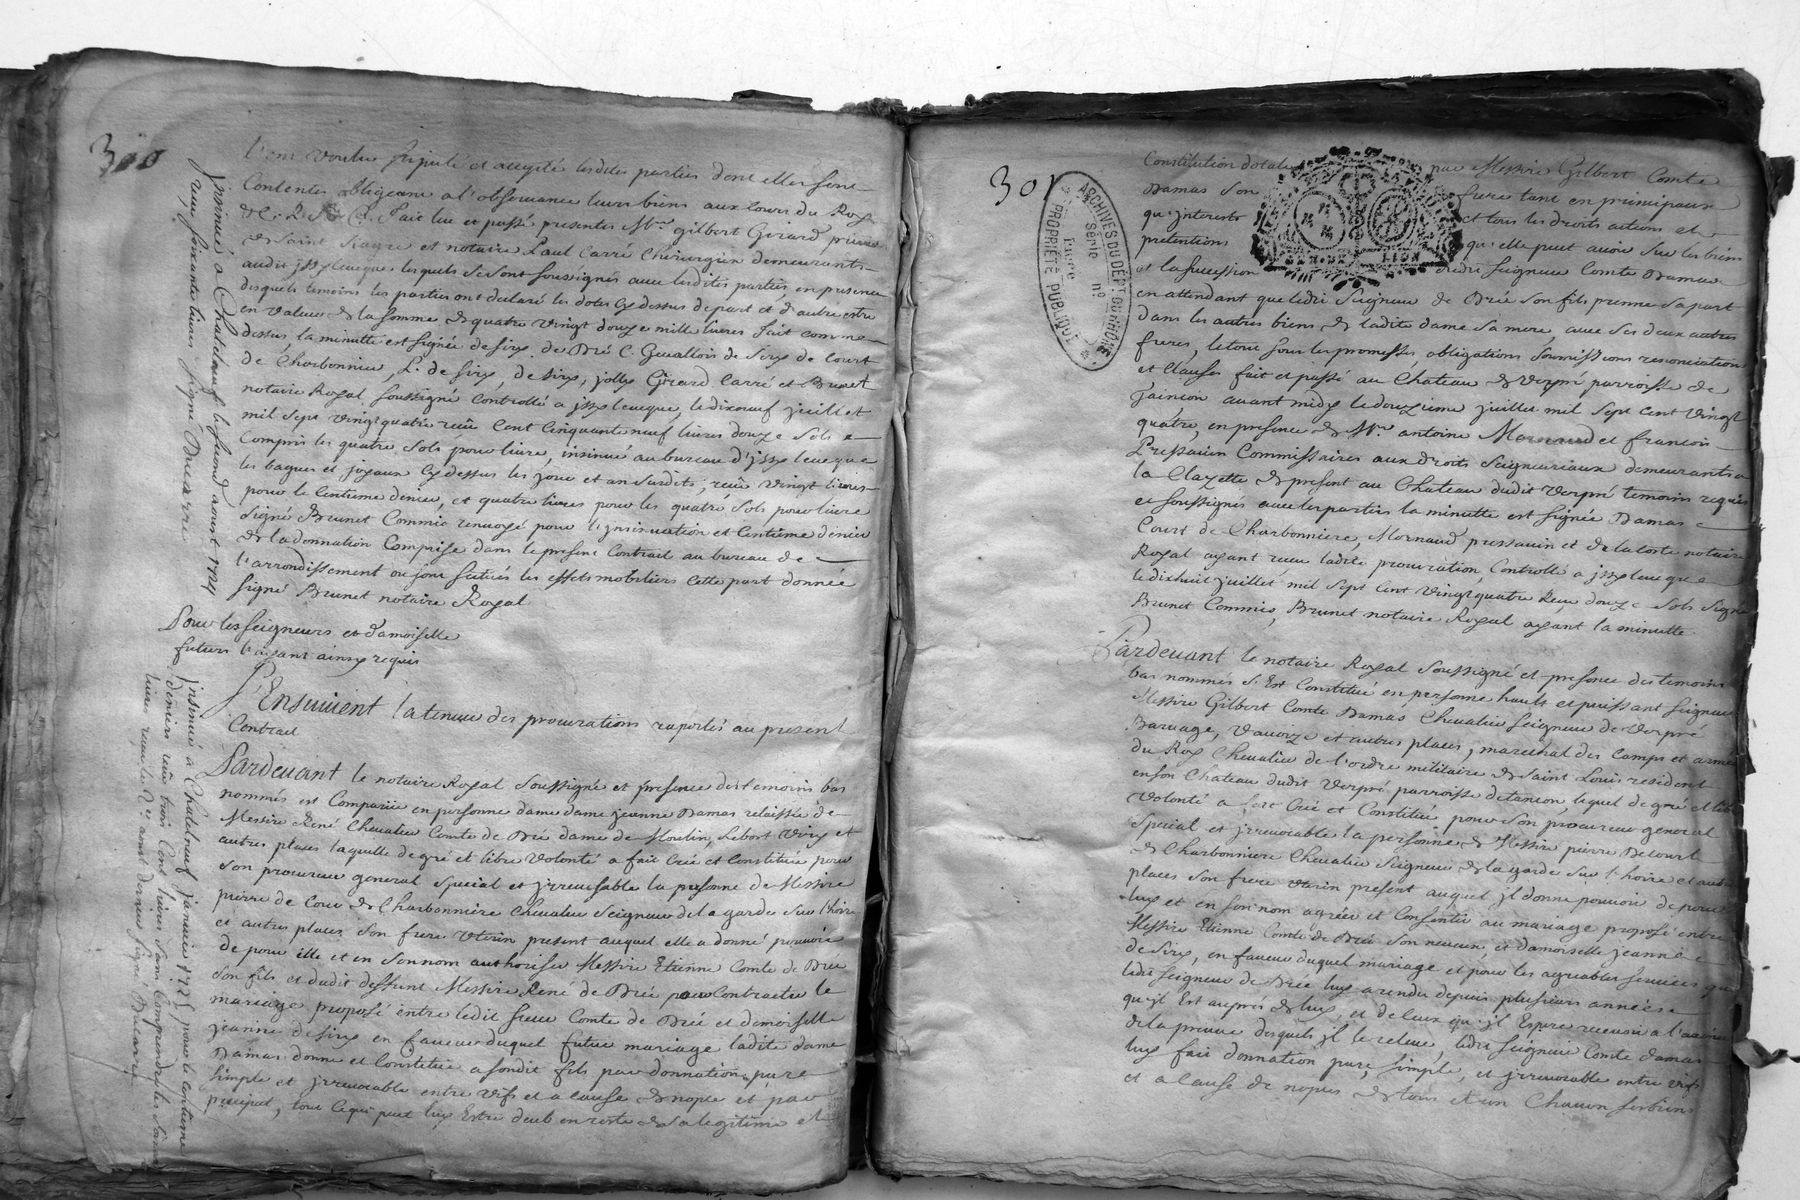 300
l'ont voulu stipulé et accepté lesdites parties dont elles sont
Contentes obligeans a l'observance leurs biens aux cours du Roy
&c. Fait leu et passé presentes Mre gilbert Girard prieur
de Saint et notaire Paul Carré Chirurgien demeurants
audit jssyleveque lesquels se sont soussignés avec lesdites parties, en presence
desquels temoins les parties ont declaré les dotes cy dessus de part et d'autre estre
en valeur de la somme de quatre vingt douze mille livres fait comme
dessus, la minutte est signée de sirx, de Dré C. de Sirx de Court
de Charbonniere, L. de sirx, de sirx, jolly Girard Carré et Brunet
notaire Royal soussigné Controllé a jssyleveque, le dixneuf juillet
mil sept vingt quatre receu Cent Cinquante neuf livres douze sols
Compris les quatre sols pour livre, insinué au bureau d'jssyleveque
les bagues et joyaux cy dessus les jour et an susdits, receu vingt livres
pour le Centieme denier, et quatre livres pour les quatre sols pour livre
signé Brunet Commis renvoyé pour l'jnsinuation et Centieme denier
de la donnation Comprise dans le present Contract au bureau de
l'arrondissement ou sont scitués les effets mobiliers cette part donnée
signé Brunet notaire Royal
Pour les seigneurs et damoiselle
futurs l'ayant ainsy requis
S'Ensuivent la teneur des procurations raportés au present
Contract
Pardevant le notaire Royal Soussigné et presence des temoins bas
nommés est Comparüe en personne dame dame jeanne Damas relaissée de
Messire René Chevalier Comte de Dré dame de Moulin, Lebost Virx et
autres places laquelle de gré et libre volonté a fait Créé et Constitüé pour
son procureur general special et jrrevocable la personne de Messire
pierre de Cour de Charbonniere Chevalier Seigneur de la garde sur l'hoire
et autres places son frere Uterin present auquel elle a donné pouvoir
de pour elle et en son nom authoriser Messire Etienne Comte de Drée
son fils et dudit deffunt Messire René de Drée pour Contracter le
mariage proposé entre ledit sieur Comte de Drée et demoiselle
jeanne de sirx en faveur duquel futur mariage ladite dame
Damas donne et Constitüe a sondit fils par donnation pure
simple et jrrevocable entre vifs et a cause de nopce et par
preciput, tout ce qui peut luy Estre deub en reste de sa legitime et
jnsinué a Chateauneuf le second aoust 1724
receu soixante livres signé Ducarre
jnsinué a Chateauneuf janvier 1725 pour le centieme
denier receu trois Cent livres sans Comprendre les soixante
livres receu le 2e aoust dernier signé Ducarre
301
Constitution dotale par Messire Gilbert Comte
Damas son frere tant en principaux
qu'jnterests et tous les droits actions et
pretentions qu'elle peut avoir sur les biens
et la succession dudit seigneur Comte Damas
en attendant que ledit Seigneur de Drée son fils prenne sa part
dans les autres biens de ladite dame sa mere, avec ses deux autres
freres, le tout sous les promesses obligations soumissions renonciation
et Clauses fait et passé au Chateau de Verpré parroisse de
Taincon avant midy le douzieme juillet mil sept cent vingt
quatre, en presence de Mre antoine Mornaud et francois
Pressavin Commissaires aux droits Seigneuriaux demeurants a
la Clayette de present au Chateau dudit Verpré temoins requis
et soussignés avec les parties la minutte est signée Damas
Court de Charbonniere, Mornaud pressavin et de lacoste notaire
Royal ayant receu ladite procuration, Controllé a jssyleveque
le dixhuit juillet mil sept Cent vingt quatre Receu douze sols signé
Brunet Commis, Brunet notaire Royal ayant la minutte.
Pardevant le notaire Royal soussigné et presence des temoins
bas nommés S. Est Constitué en personne hault et puissant seigneur
Messire Gilbert Comte Damas Chevalier seigneur de Verpré
Barnage, Vavorze et autres places, marechal des Camps et armées
du Roy Chevalier de l'ordre militaire de Saint Louis resident
en son Chateau dudit Verpré parroisse de tancon, lequel de gré et libre
volonté a fait Créé et Constitué pour son procureur general
special et jrrevocable la personne de Messire pierre Decourt
de Charbonniere Chevalier Seigneur de la garde sur l'hoire et autres
places son frere uterin present auquel jl donne pouvoir de pour
luy et en son nom agréer et Consentir au mariage proposé entre
Messire Etienne Comte de Drée son neveux, et damoiselle jeanne
de sirx, en faveur duquel mariage et pour les agreables services que
ledit seigneur de Drée luy a rendu depuis plusieurs années
qu'jl Est auprés de luy, et de ceux qu'jl Espere recevoir a l'avenir
de la preuve desquels jl le releve, ledit seigneur Comte damas
luy fait donnation pure, simple, et jrrevocable entre vifs
et a Cause de nopces de tous et un Chacun ses biens
ARCHIVES DU DÉPT DU RHÔNE
Série n°
Pièce
PROPRIÉTÉ PUBLIQUE
GEN. DE LION